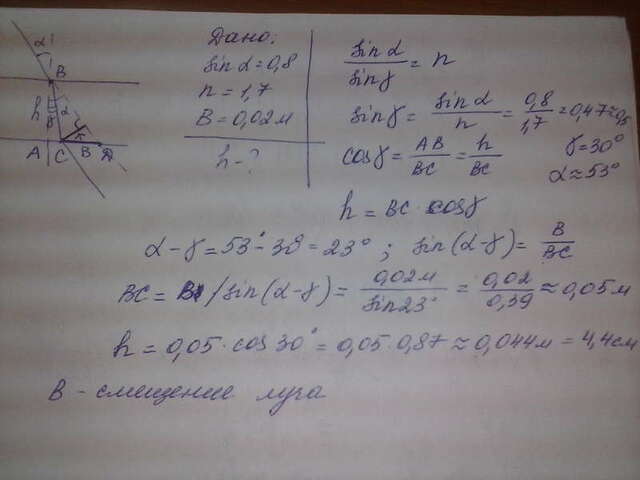 Дано:
sin α = 0,8
n = 1,7
B = 0,02 м
h - ?
α
B
h
α
γ
A C B D
sin α / sin γ = n
sin γ = sin α / n = 0,8 / 1,7 = 0,47 ≈ 0,5
cos γ = AB / BC = h / BC
γ = 30°
α ≈ 53°
h = BC · cos γ
α - γ = 53° - 30 = 23° ; sin(α - γ) = B / BC
BC = B / sin(α - γ) = 0,02 м / sin 23° = 0,02 / 0,39 ≈ 0,05 м
h = 0,05 · cos 30° = 0,05 · 0,87 ≈ 0,044 м = 4,4 см
B - смещение луча